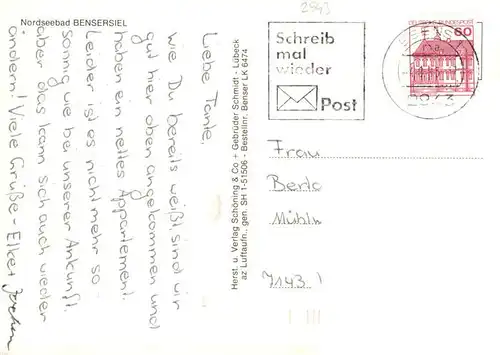 Nordseebad BENSERSIEL
Liebe Tante.
Wie Du bereits weißt, sind wir
gut hier oben angekommen und
haben ein nettes Appartement.
Leider ist es nicht mehr so
sonnig wie bei unserer Ankunft.
aber das kann sich auch wieder
ändern! Viele Grüße - Elke +
Herst. u. Verlag Schöning & Co + Gebrüder Schmidt - Lübeck
az Luftaufn., gen. SH 1-51506 - Bestellnr. Benser LK 6474
2943
Schreib
mal
wieder
Post
DEUTSCHE BUNDESPOST
60
2943
Frau
Berta
Mühln
7143